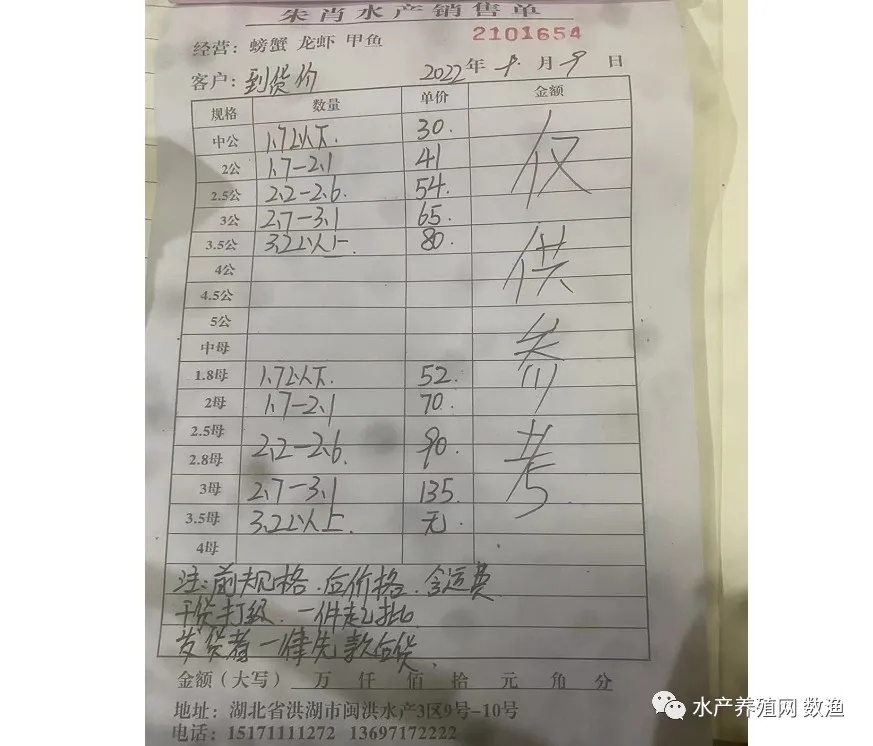 朱肖水产销售单
经营：螃蟹 龙虾 甲鱼 2101654
客户：到货价 2022年 9 月 9 日
规格 数量 单价 金额
中公 1.7以下. 30.
2公 1.7-2.1 41
2.5公 2.2-2.6 54.
3公 2.7-3.1 65.
3.5公 3.2以上 80.
4公
4.5公
5公
中母
1.8母 1.7以下. 52.
2母 1.7-2.1 70.
2.5母
2.8母 2.2-2.6. 90.
3母 2.7-3.1 135.
3.5母 3.2以上. 无.
4母
仅供参考
注:前规格.后价格.含运费
干货打级.一件起批
发货者一律先款后货.
金额（大写） 万 仟 佰 拾 元 角 分
地址：湖北省洪湖市闽洪水产3区9号-10号
电话：15171111272 13697172222
水产养殖网 数渔